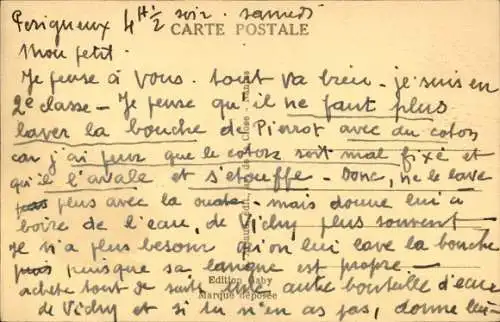 Perigueux 4H 1/2 soir. samedi
CARTE POSTALE
Mon petit.
Je pense à Vous. tout va bien. je suis en
2e classe — Je pense qu'il ne faut plus
laver la bouche de Pierrot avec du coton
car j'ai peur que le coton soit mal fixé et
qu'il l'avale et s'étouffe. Donc, ne le lave
pas plus avec la ouate. mais donne lui à
boire de l'eau de Vichy plus souvent
Je n'ai plus besoin qu'on lui lave la bouche
puis puisque sa langue est propre —
achète tout de suite une autre bouteille d'eau
de Vichy et si tu n'en as pas, donne lui-
Edition Gaby
Marque déposée